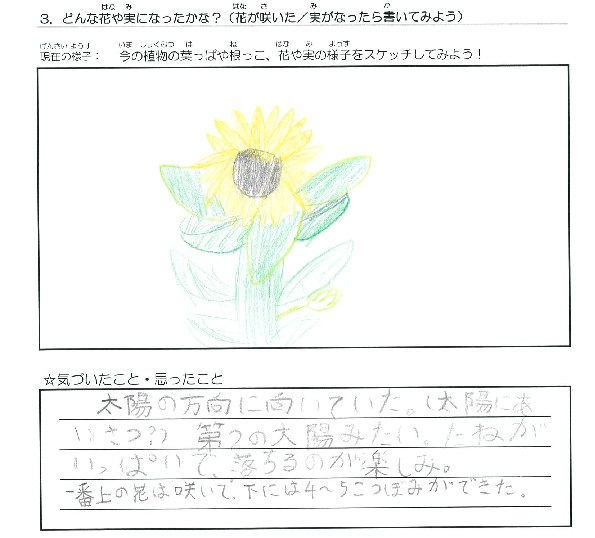 はな み はな さ み か
3．どんな花や実になったかな？（花が咲いた／実がなったら書いてみよう）
げんざい ようす いま しょくぶつ は ね はな み ようす
現在の様子： 今の植物の葉っぱや根っこ、花や実の様子をスケッチしてみよう！
☆気づいたこと・思ったこと
太陽の方向に向いていた。（太陽にあ
いさつ??） 第2の太陽みたい。たねが
いっぱいで、落ちるのが楽しみ。
一番上の花は咲いて、下には4～5こつぼみができた。